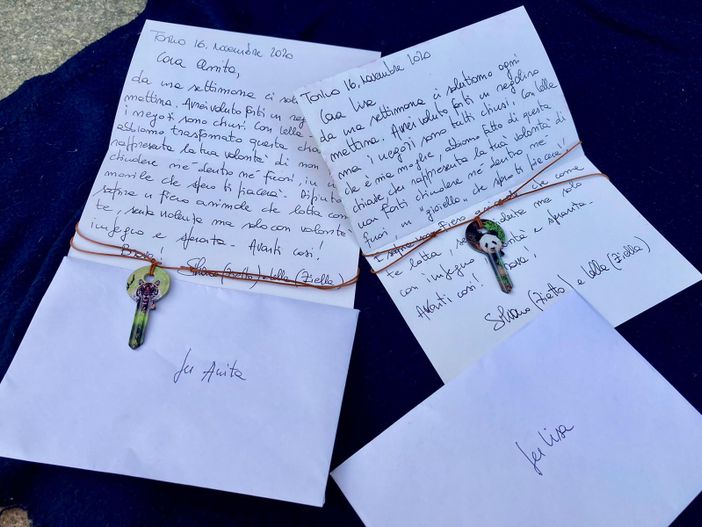 Torino 16, novembre 2020
Cara Anita,
da una settimana ci
mattina. Avrei voluto farti un
i negozi sono chiusi. Con Lella
abbiamo trasformato questa
rappresenta la tua volontà di non
chiudere né dentro né fuori, in un
monile che spero ti piacerà. Dipinto
sopra un fiero animale che lotta con
te, senza violenza ma solo con volontà
ingegno e sparuta. Avanti così!
Brava!
Silvano (Zietto) e Lella (Zietta)
per Anita
Torino 16, novembre 2020
Cara Lisa
da una settimana ci salutiamo ogni
mattina. Avrei voluto farti un regalino
ma i negozi sono tutti chiusi. Con Lella
che è mia moglie, abbiamo fatto di questa
chiave, che rappresenta la tua volontà di
non farti chiudere né dentro né
fuori, un "gioiello" che spero ti piacerà!
che come
te lotta,
con ingegno
Avanti così!
Silvano (Zietto) e Lella (Zietta)
per Lisa